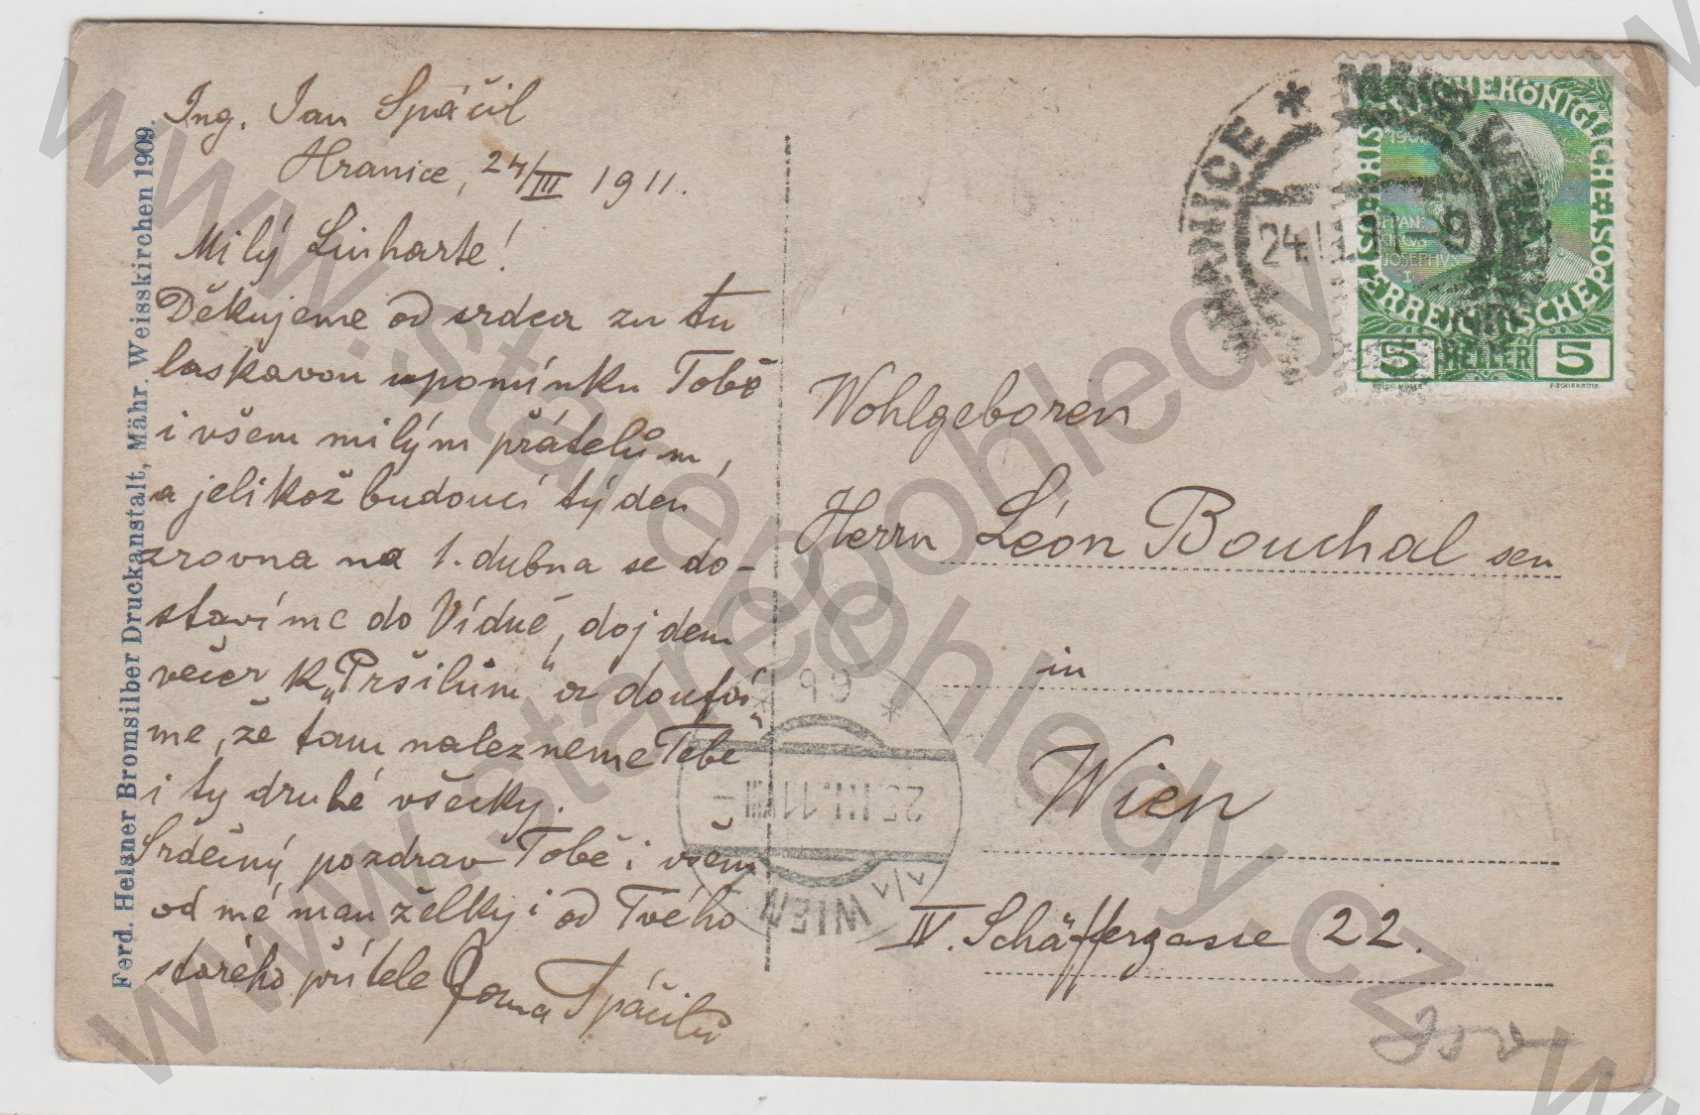 Ing. Jan Spáčil
Hranice, 24/III 1911.
Milý Linharte!
Děkujeme od srdca za tu
laskavou upomínku Tobě
i všem milým přátelům,
a jelikož budoucí týden
zrovna na 1. dubna se do-
stavíme do Vídně, dojdem
večer k „Pršilům" a doufá-
me, že tam nalezneme Tebe
i ty druhé všecky.
Srdečný pozdrav Tobě i všem
od mé manželky i od Tvého
starého přítele Spáčila
Ferd. Helsner Bromsilber Druckanstalt, Mähr. Weisskirchen 1909.
HRANICE
24.III.11-9
KAISERLICHE KÖNIGLICHE ÖSTERREICHISCHE POST
1908
FRANCISCUS JOSEPHUS I
5 HELLER 5
Wohlgeboren
Herrn Léon Bouchal sen
in
Wien
IV. Schäffergasse 22.
WIEN
25.III.11
www.starepohledy.cz
www.starepohledy.cz